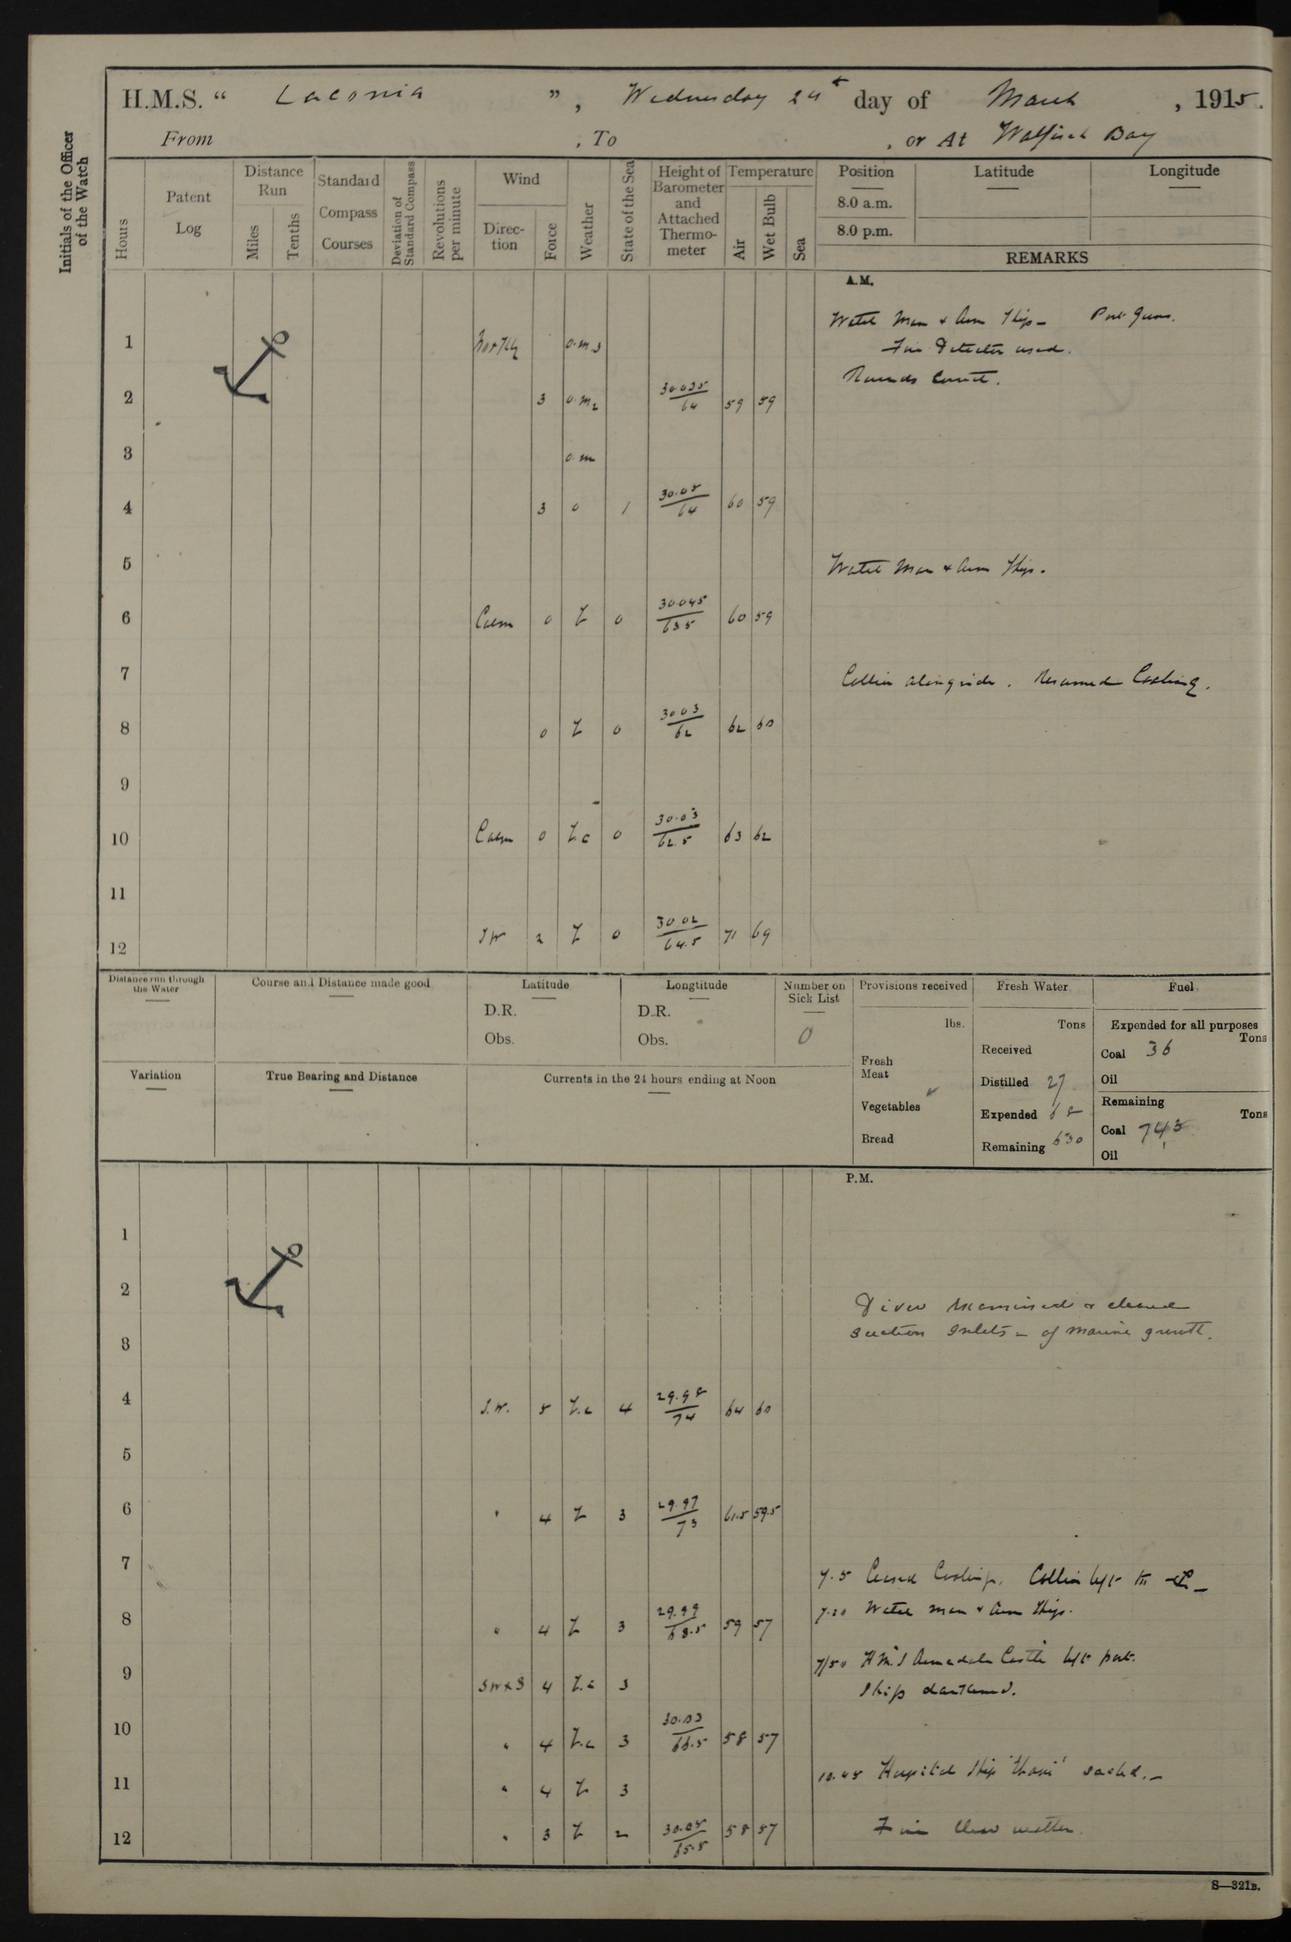 H.M.S. “ Laconia ”, Wednesday 24th day of March, 1915.
From , To , or At Walfisch Bay
Initials of the Officer of the Watch
Hours
Patent Log
Distance Run
Miles
Tenths
Standard Compass Courses
Deviation of Standard Compass
Revolutions per minute
Wind
Direction
Force
Weather
State of the Sea
Height of Barometer and Attached Thermometer
Temperature
Air
Wet Bulb
Sea
Position
8.0 a.m.
8.0 p.m.
Latitude
Longitude
REMARKS
A.M.
Watch Man & Arm Ship - Port Guns.
1 North'ly o.m.
Fire Detector used.
Rounds Correct.
2 3 o.m. 30.035/64 59 59
3 o.m
4 3 o 1 30.05/64 60 59
5 Watch Man & Arm Ship.
6 Calm 0 b 0 30.045/63.5 60 59
7 Collier alongside. Resumed Coaling.
8 0 b 0 30.03/62 62 60
9
10 Calm 0 b.c 0 30.03/62.5 63 62
11
12 SW 2 b 0 30.02/64.5 71 69
Distance run through the Water
Course and Distance made good
Latitude
D.R.
Obs.
Longtitude
D.R.
Obs.
Number on Sick List
0
Provisions received
lbs.
Fresh Meat
Vegetables
Bread
Fresh Water
Tons
Received
Distilled 27
Expended 68
Remaining 630
Fuel
Expended for all purposes
Tons
Coal 36
Oil
Remaining
Tons
Coal 743
Oil
Variation
True Bearing and Distance
Currents in the 24 hours ending at Noon
P.M.
1
2 Diver examined & cleared
suction Inlets - of marine growth.
3
4 S.W. 5 b.c 4 29.98/74 64 60
5
6 " 4 b 3 29.97/73 61.5 59.5
7 7.5 Ceased Coaling. Collier left the
8 " 4 b 3 29.99/68.5 59 57 7.20 Watch man & Arm Ship.
7/50 H.M.S Armadale Castle left port.
9 SWxS 4 b.c 3 Ship darkened.
10 " 4 b.c 3 30.03/66.5 58 57
11 " 4 b 3 10.45 Hospital Ship sailed. -
12 " 3 b 2 30.05/65.5 58 57 Fine clear weather.
S—321B.